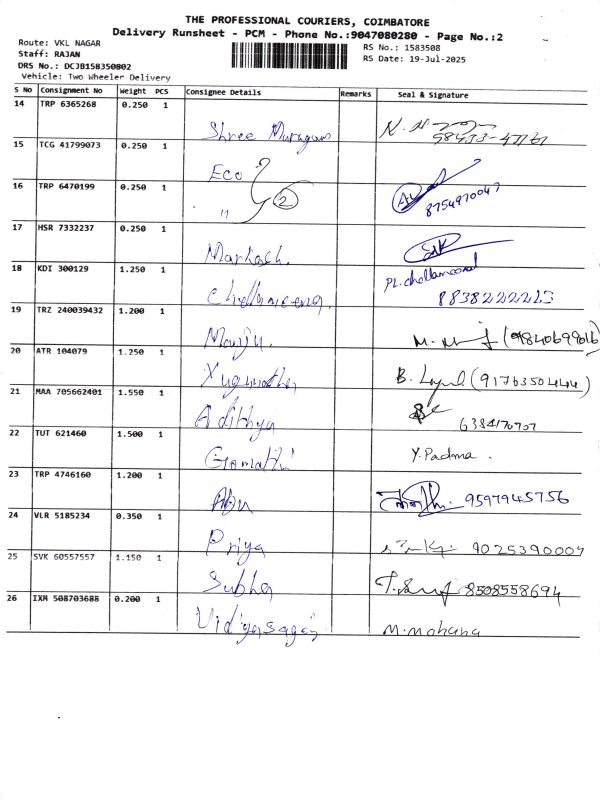 THE PROFESSIONAL COURIERS, COIMBATORE
Delivery Runsheet - PCM - Phone No.:9047080280 - Page No.:2
Route: VKL NAGAR
Staff: RAJAN
DRS No.: DCJB158350802
Vehicle: Two Wheeler Delivery
RS No.: 1583508
RS Date: 19-Jul-2025
S No Consignment No Weight PCS Consignee Details Remarks Seal & Signature
14 TRP 6365268 0.250 1 Shree Murugan
15 TCG 41799073 0.250 1 Eco
16 TRP 6470199 0.250 1 " 2 8754970047
17 HSR 7332237 0.250 1
18 KDI 300129 1.250 1 PL. chellameenal 8838222213
19 TRZ 240039432 1.200 1 Manju. M.
20 ATR 104079 1.250 1 B. (9176350444)
21 MAA 705662401 1.550 1 Adithya 6384170707
22 TUT 621460 1.500 1 Gomathi Y. Padma.
23 TRP 4746160 1.200 1 9597945756
24 VLR 5185234 0.350 1 Priya 9025390007
25 SVK 60557557 1.150 1 Subha 8508558694
26 IXM 508703688 0.200 1 Vidyasagar M. Mohana